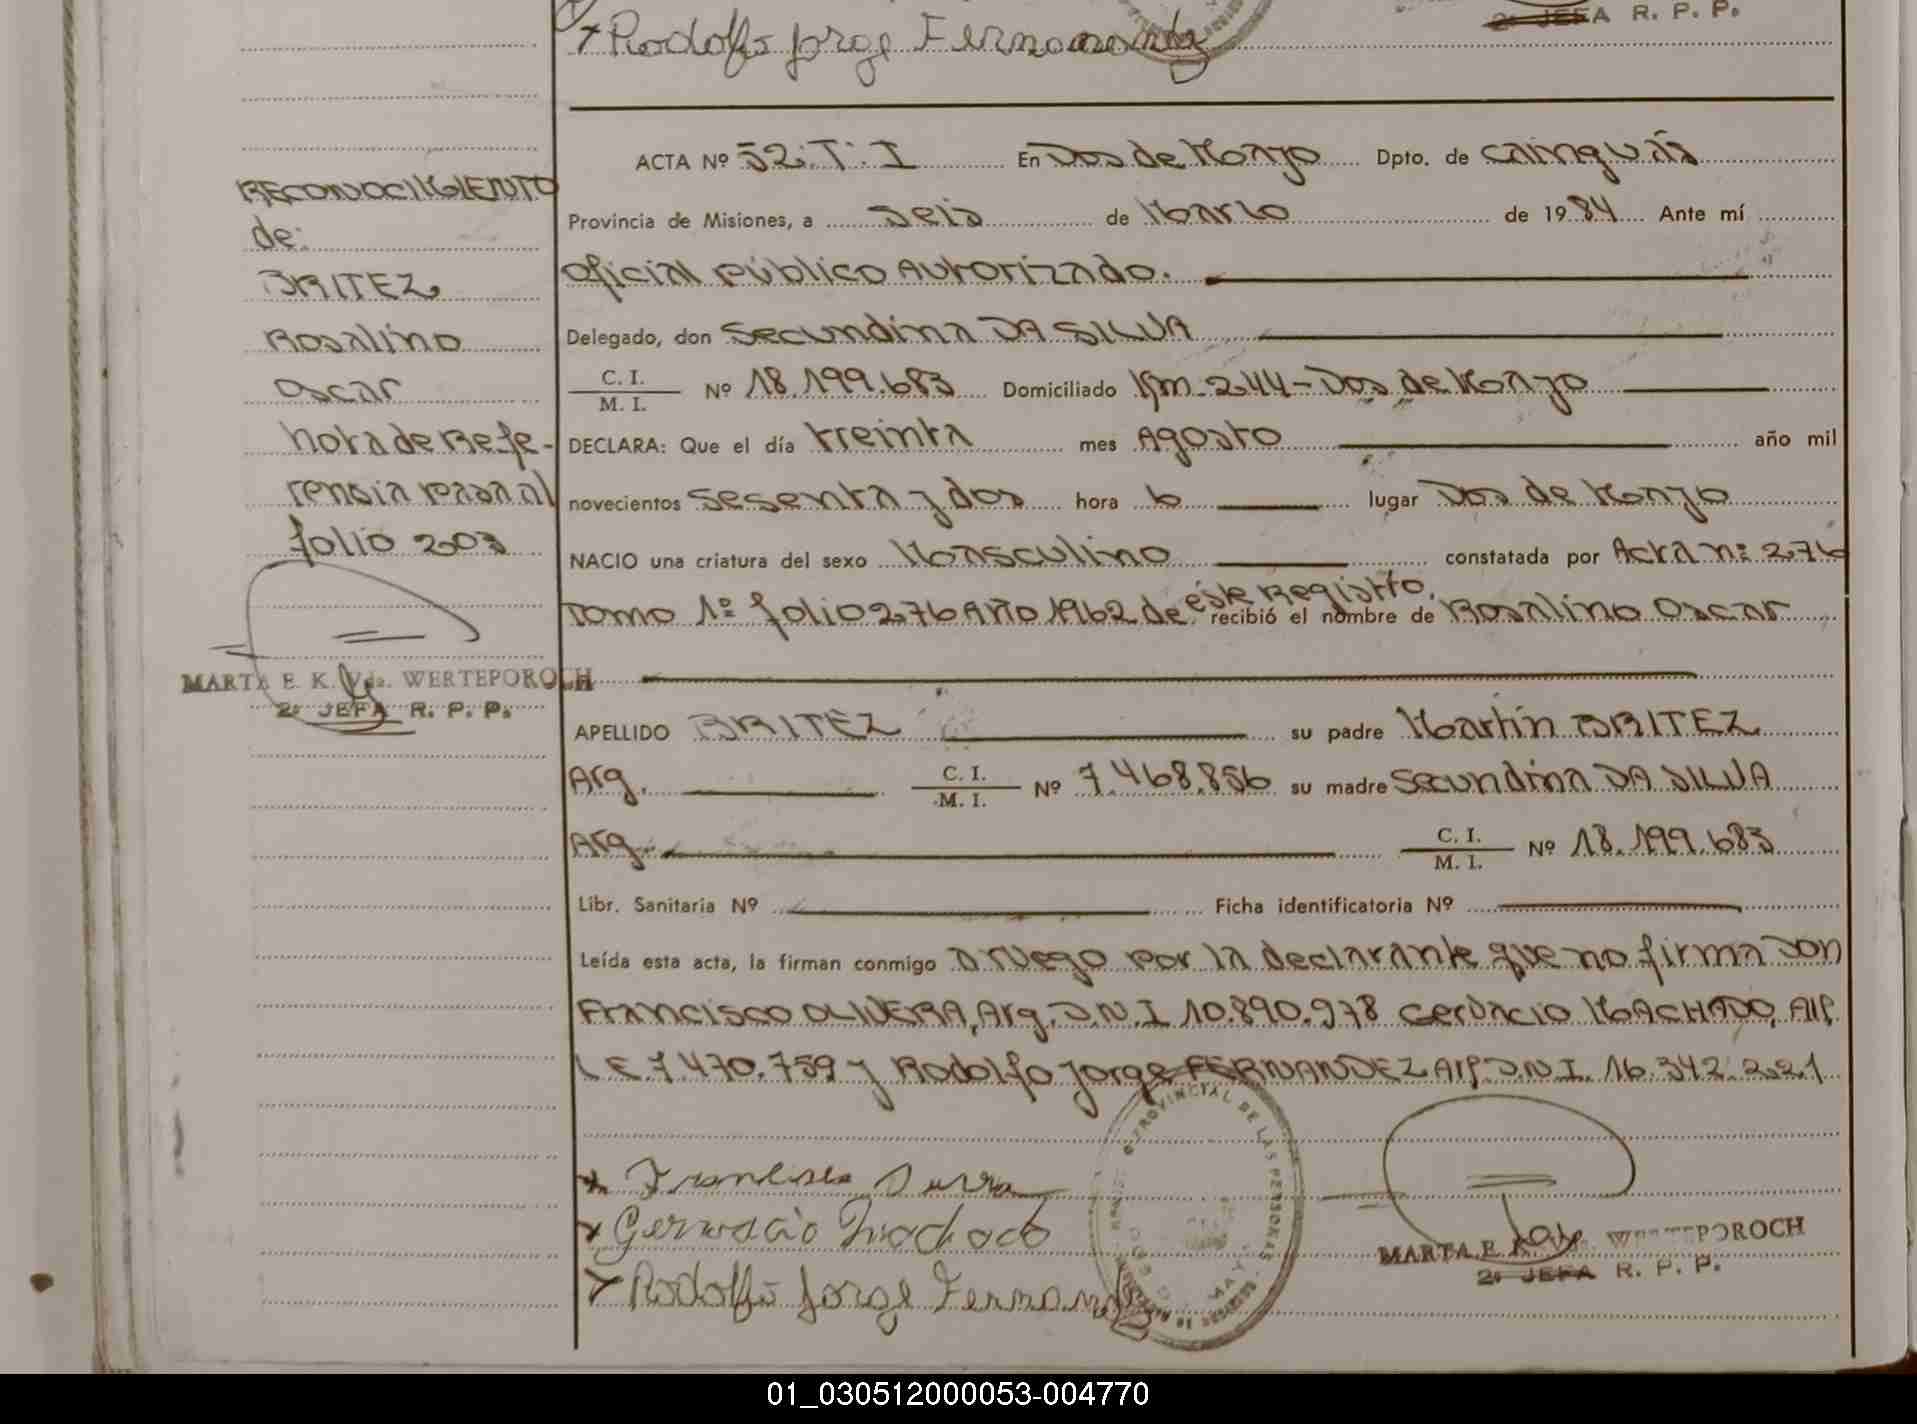 2º JEFA R. P. P.
Rodolfo Jorge Fernandez
RECONOCIMIENTO
de:
BRITEZ
Rosalino
Oscar
Nota de Refe-
rensia pasa al
folio 203
MARTA E. K. Vda. WERTEPOROCH
2º JEFA R. P. P.
ACTA Nº 52. T. I En Dos de Mayo Dpto. de Cainguás
Provincia de Misiones, a seis de Marzo de 1984 Ante mí
Oficial Público Autorizado.
Delegado, don Secundina DA SILVA
C. I. / M. I. Nº 18.199.683 Domiciliado Km. 244 - Dos de Mayo
DECLARA: Que el día treinta mes Agosto año mil
novecientos sesenta y dos hora 6 lugar Dos de Mayo
NACIO una criatura del sexo Masculino constatada por Acta nº 276
Tomo 1º folio 276 Año 1962 de éste Registro. recibió el nombre de Rosalino Oscar
APELLIDO BRITEZ su padre Martín BRITEZ
Arg. C. I. / M. I. Nº 7.468.856 su madre Secundina DA SILVA
Arg. C. I. / M. I. Nº 18.199.683
Libr. Sanitaria Nº Ficha identificatoria Nº
Leída esta acta, la firman conmigo a ruego por la declarante que no firma Don
Francisco OLIVERA, Arg. D.N.I 10.890.978 Gervacio MACHADO, Arg.
L E 7.470.759 y Rodolfo Jorge FERNANDEZ Arg. D.N.I. 16.342.221
PROVINCIAL DE LAS PERSONAS
DOS DE MAYO
Gervacio Machado
Rodolfo Jorge Fernandez
MARTA E. K. Vda. WERTEPOROCH
2º JEFA R. P. P.
01_030512000053-004770